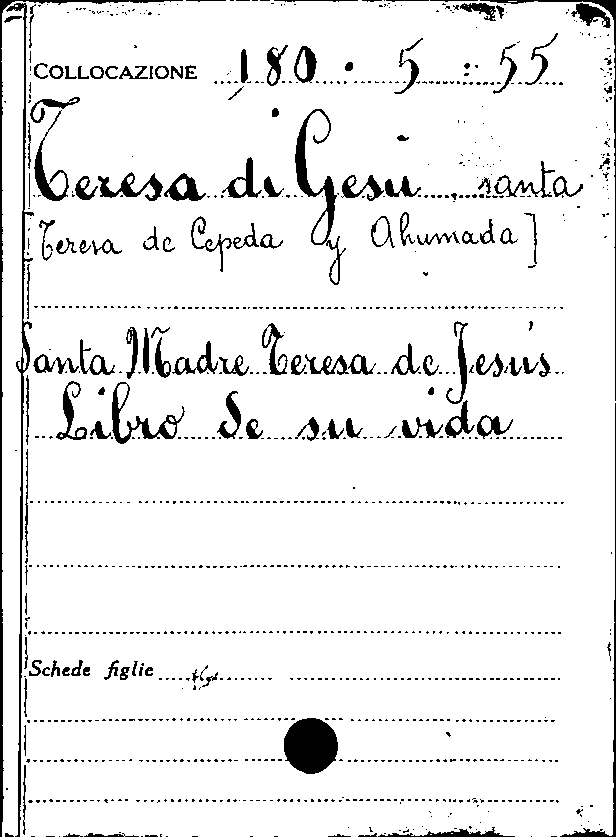 COLLOCAZIONE 180 . 5 : 55
Teresa di Gesù , santa
[Teresa de Cepeda y Ahumada]
Santa Madre Teresa de Jesús
Libro de su vida
Schede figlie